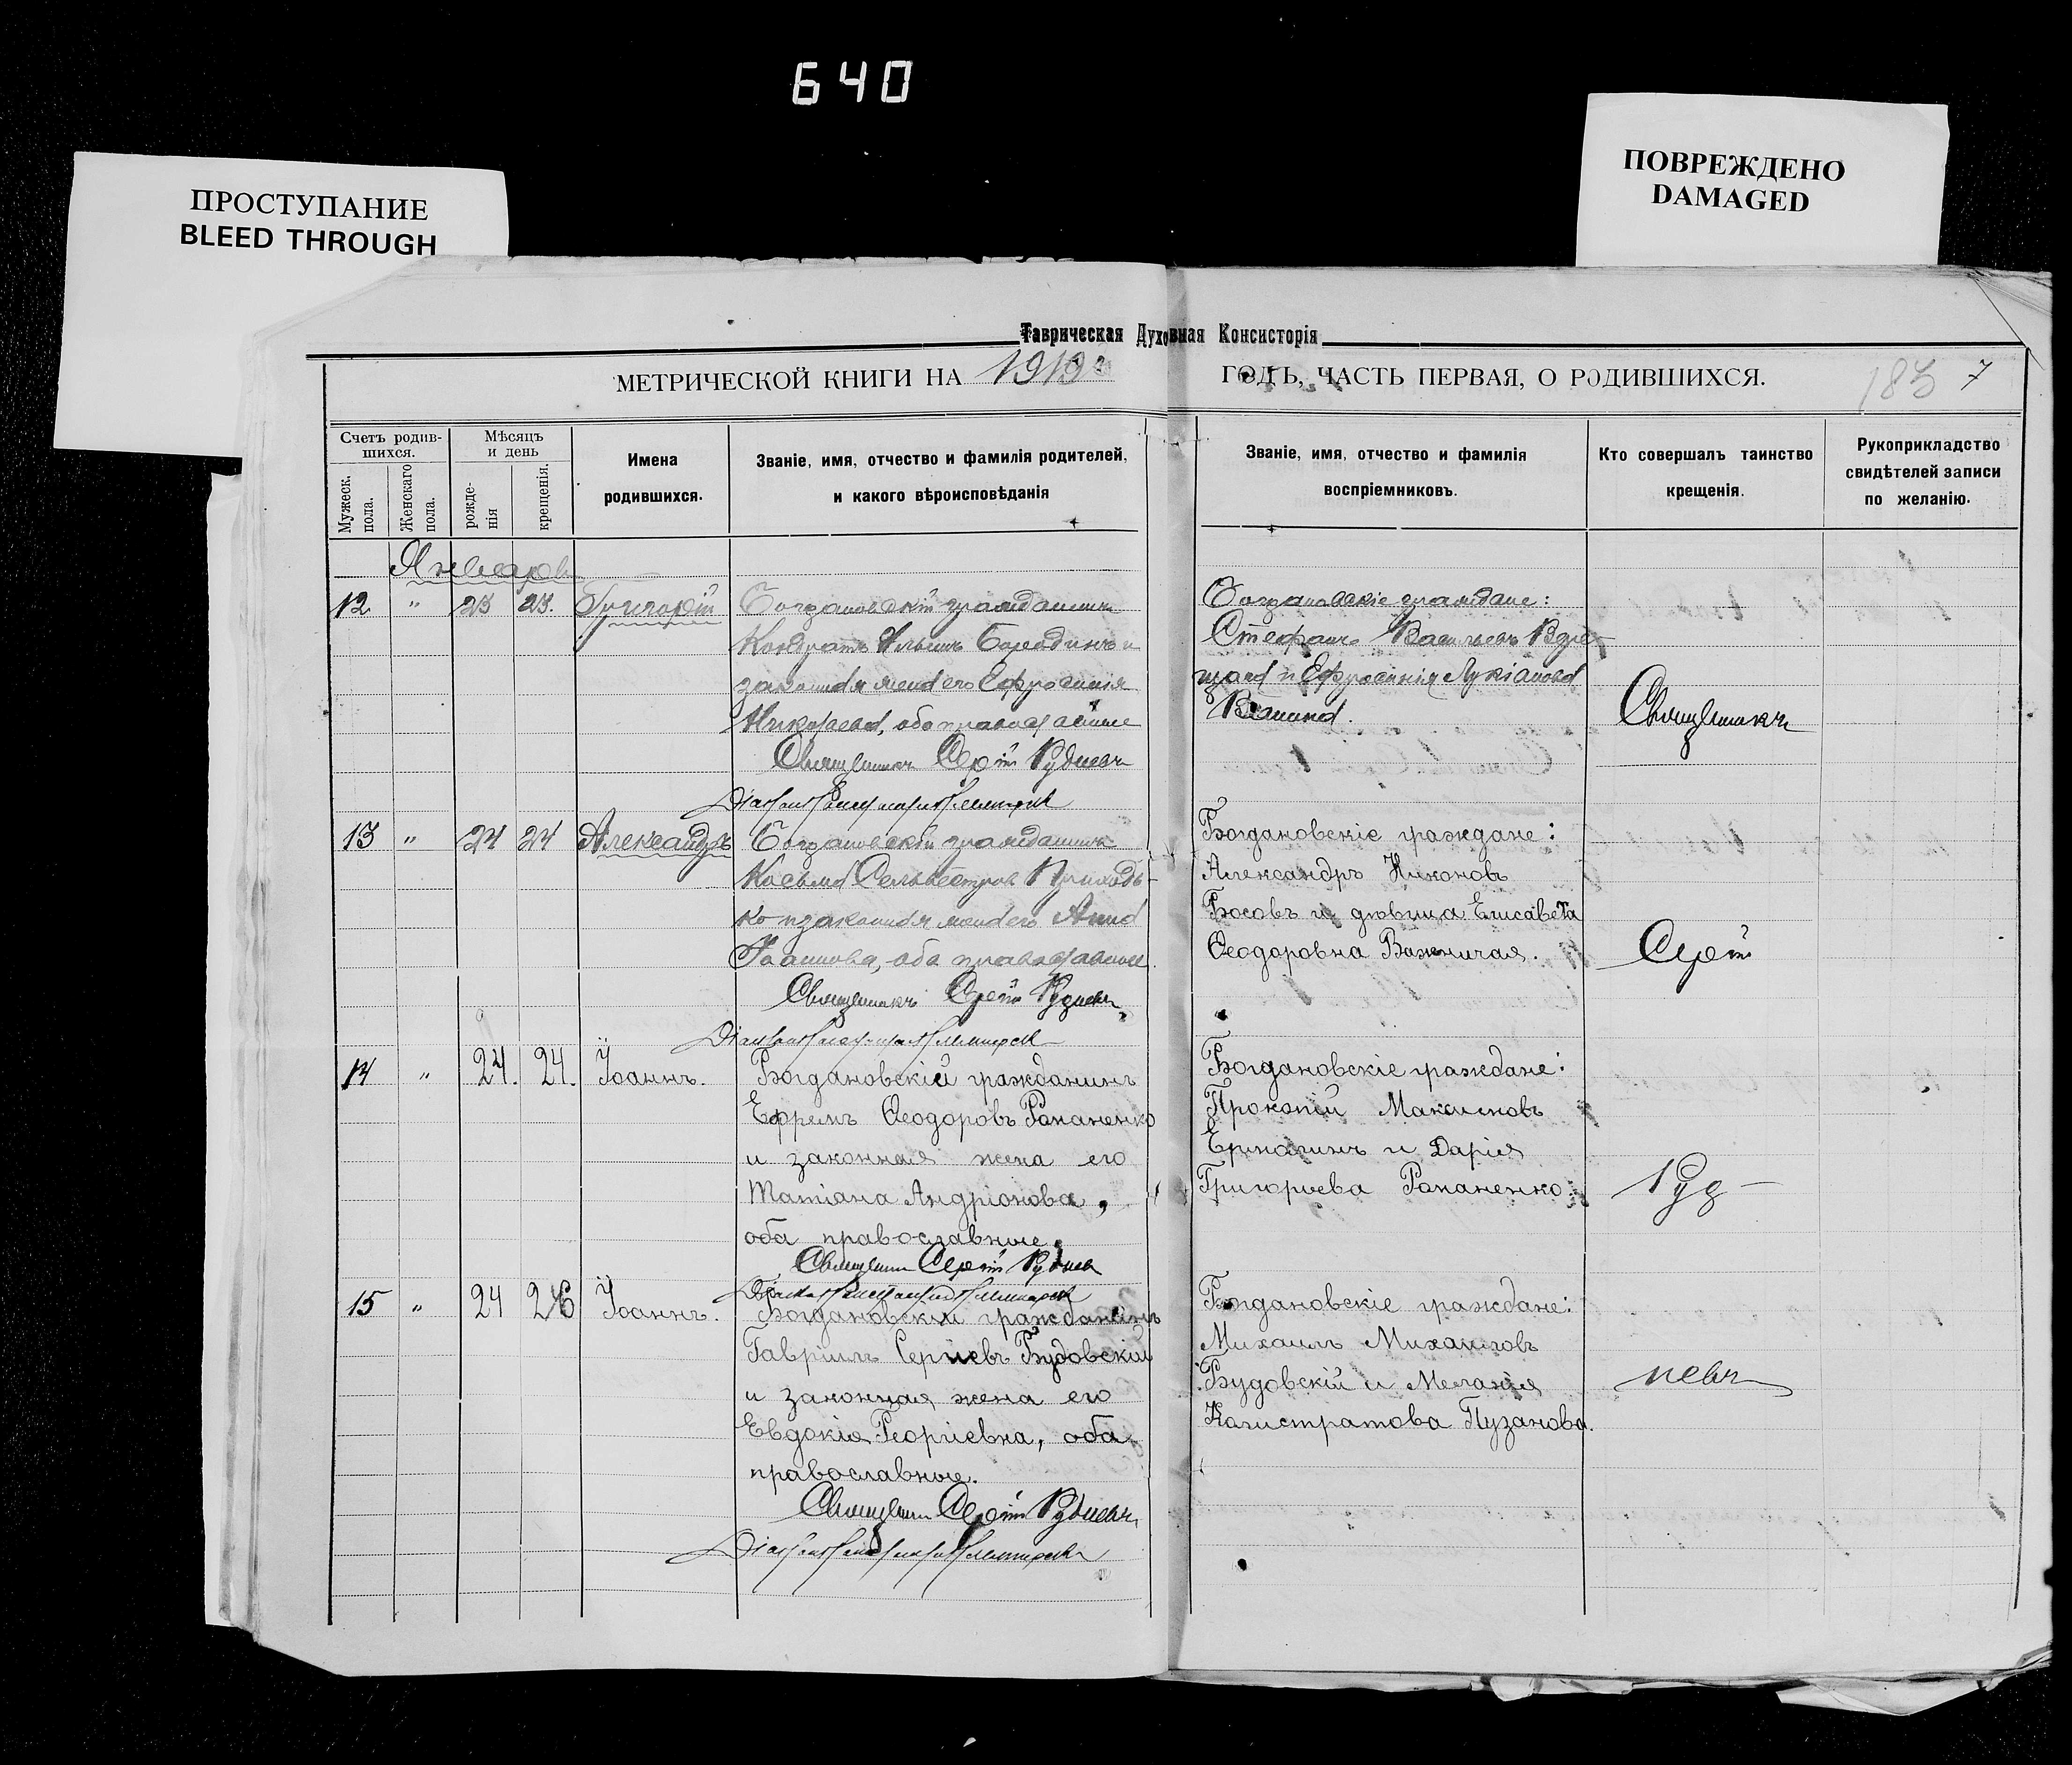 640
ПРОСТУПАНИЕ
BLEED THROUGH
ПОВРЕЖДЕНО
DAMAGED
Таврическая Духовная Консисторія
МЕТРИЧЕСКОЙ КНИГИ НА 1919 ГОДЪ, ЧАСТЬ ПЕРВАЯ, О РОДИВШИХСЯ.
183 7
Счетъ родив-
шихся.
Мужеск.
пола.
Женскаго
пола.
Мѣсяцъ
и день
рожде-
нія
крещенія.
Имена
родившихся.
Званіе, имя, отчество и фамилія родителей,
и какого вѣроисповѣданія
Званіе, имя, отчество и фамилія
воспріемниковъ.
Кто совершалъ таинство
крещенія.
Рукоприкладство
свидѣтелей записи
по желанію.
Январь
12 " 23 23. Григорій
Богдановскій гражданинъ
Кондратъ Ильинъ Бородинъ и
законная жена его Ефросинія
Николаева, оба православные
Священникъ Сергій Рудневъ
Діаконъ
Богдановскіе граждане:
Стефанъ Васильевъ
и Ефросинія Лукіанова
Священникъ
13 " 24 24 Александръ
Богдановскій гражданинъ
Косьма Сельвестровъ Приходь-
ко и законная жена его Анна
Іоаннова, оба православные
Священникъ Сергій Рудневъ
Діаконъ
Богдановскіе граждане:
Александръ Никоновъ
Босовъ и дѣвица Елисавета
Ѳеодоровна Важничая.
Сергій
14 " 24. 24. Іоаннъ.
Богдановскій гражданинъ
Ефремъ Ѳеодоровъ Рапаненко
и законная жена его
Татіана Андріонова,
оба православные.
Священникъ Сергій Рудневъ
Діаконъ
Богдановскіе граждане:
Прокопій Максимовъ
и Дарія
Григорьева Рапаненко.
Руд-
15 " 24 26 Іоаннъ.
Богдановскій гражданинъ
Гавріилъ Сергіевъ Будовскій
и законная жена его
Евдокія Георгіевна, оба
православные.
Священникъ Сергій Рудневъ
Діаконъ
Богдановскіе граждане:
Михаилъ Михаиловъ
Будовскій и Меланія
Калистратова Пузанова.
невъ